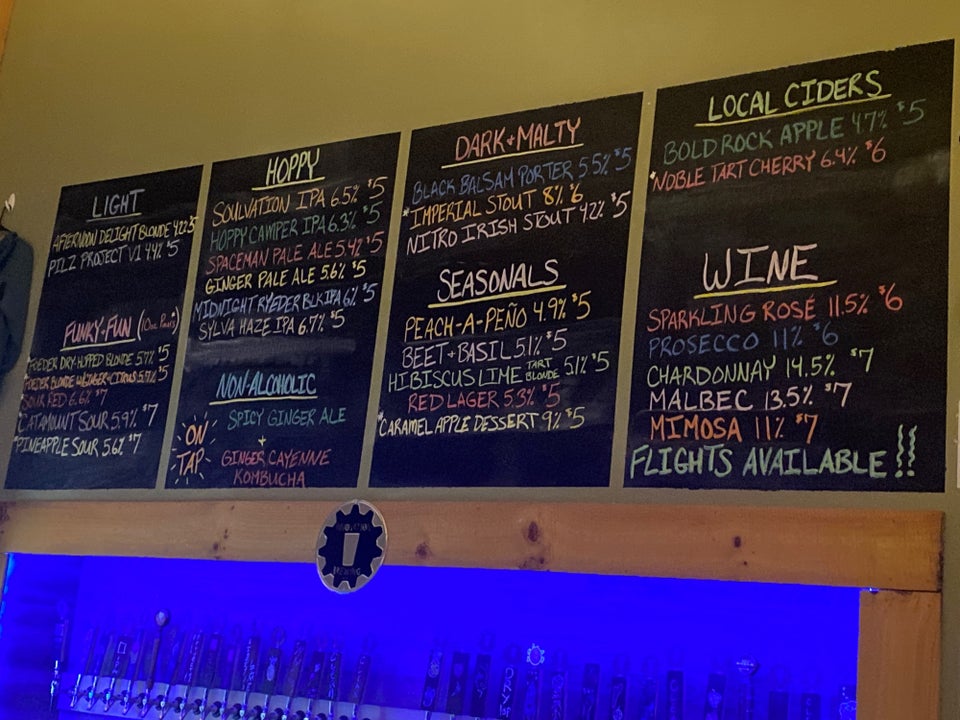 LIGHT
AFTERNOON DELIGHT BLONDE 4.2% $5
PILZ PROJECT V1 4.4% $5
FUNKY-FUN (10oz Pours)
*FOEDER DRY-HOPPED BLONDE 5.7% $5
*FOEDER BLONDE W/GINGER+CITRUS 5.7% $5
SOUR RED 6.6% $7
CATAMOUNT SOUR 5.9% $7
*PINEAPPLE SOUR 5.6% $7
HOPPY
SOULVATION IPA 6.5% $5
HOPPY CAMPER IPA 6.3% $5
SPACEMAN PALE ALE 5.4% $5
GINGER PALE ALE 5.6% $5
MIDNIGHT RYEDER BLK IPA 6% $5
SYLVA HAZE IPA 6.7% $5
NON-ALCOHOLIC
SPICY GINGER ALE
+
GINGER CAYENNE
KOMBUCHA
ON
TAP
DARK+MALTY
BLACK BALSAM PORTER 5.5% $5
*IMPERIAL STOUT 8% $6
NITRO IRISH STOUT 4.2% $5
SEASONALS
PEACH-A-PEÑO 4.9% $5
BEET+BASIL 5.1% $5
HIBISCUS LIME TART BLONDE 5.1% $5
RED LAGER 5.3% $5
*CARAMEL APPLE DESSERT 9% $5
LOCAL CIDERS
BOLD ROCK APPLE 4.7% $5
*NOBLE TART CHERRY 6.4% $6
WINE
SPARKLING ROSÉ 11.5% $6
PROSECCO 11% $6
CHARDONNAY 14.5% $7
MALBEC 13.5% $7
MIMOSA 11% $7
FLIGHTS AVAILABLE!!
BREWING